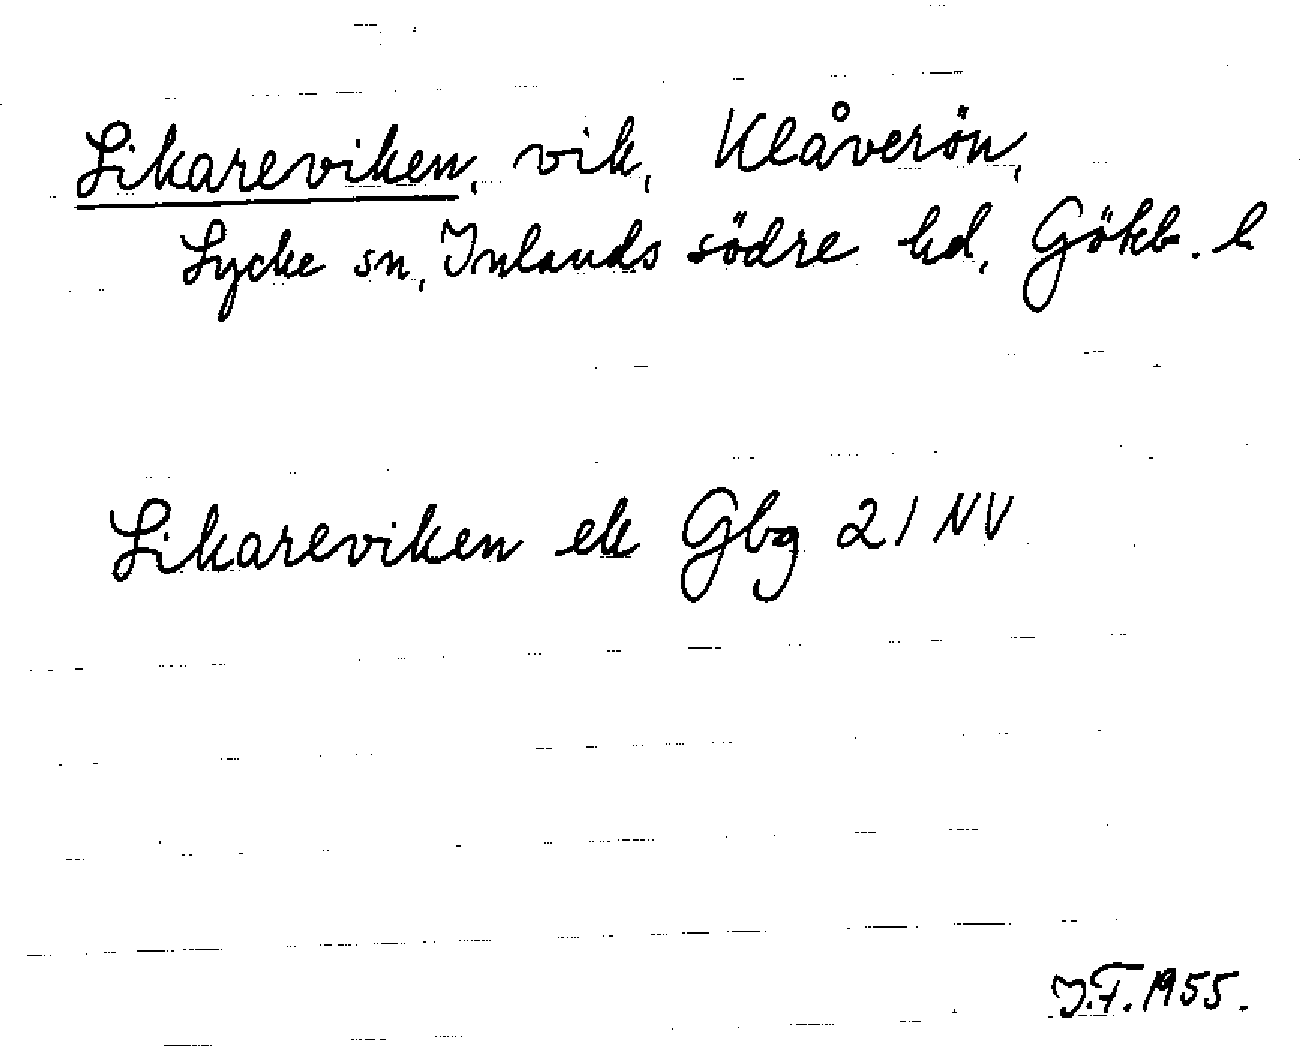 Likareviken, vik, Klåverön,
Lycke sn, Inlands södre hd, Gökb. l
Likareviken ek Gbg 21 NV
I.F. 1955.